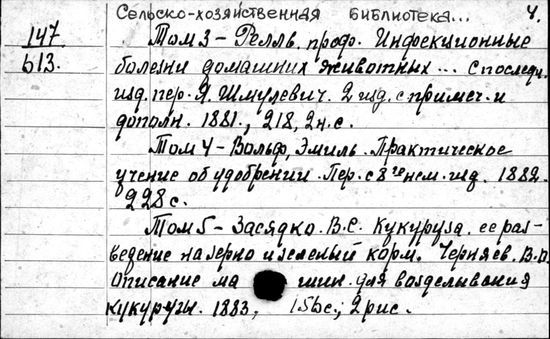 Сельско-хозяйственная библиотека... 4.
147
613.
Том 3 – Релль, проф. Инфекционные
болезни домашних животных... С последн.
изд. пер. Я. Шмулевич. 2 изд. с примеч. и
дополн. 1881, 218, 2 н.с.
Том 4 – Вольф, Эмиль. Практическое
учение об удобрении. Пер. с 8го нем. изд. 1882.
228 с.
Том 5 – Засядко. В.С. Кукуруза. ее раз-
ведение на зерно и зеленый корм. Черняев. В.В.
Описание ма шин. для возделывания
кукурузы. 1883, 156с.; 2 рис.